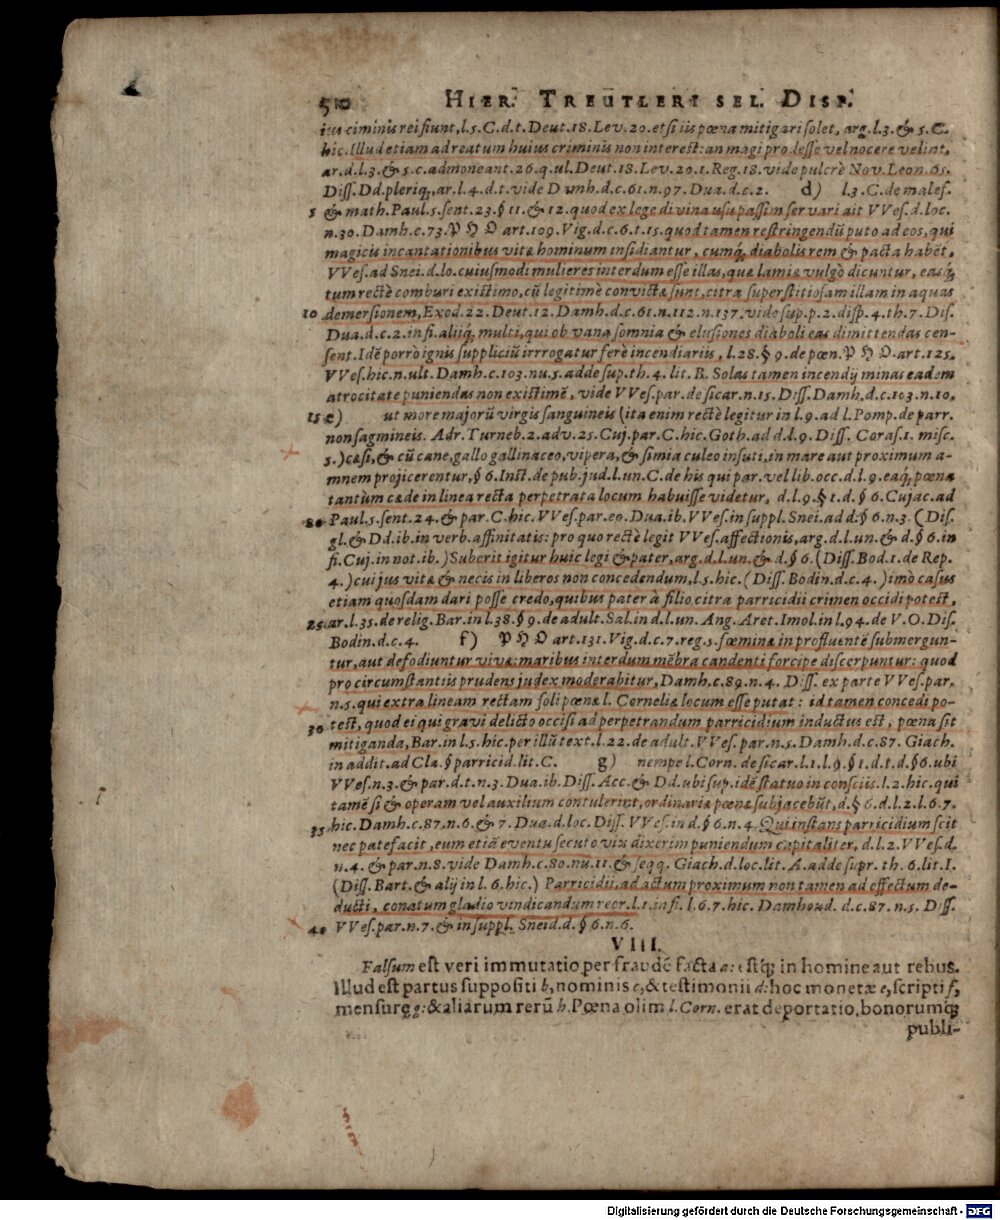 510 HIER. TREUTLERI SEL. DISP.
ius criminis rei fiunt, l.5.C.d.t. Deut.18. Lev.20. etsi iis pœna mitigari solet, arg.l.3.& 5.C.
hic. Illud etiam ad reatum huius criminis non interest: an magi prodesse vel nocere velint,
ar.d.l.3.& 5.c. admoneant.26.q.ul. Deut.18. Lev.20.1. Reg.18. vide pulcrè Nov. Leon.65.
Diss. Dd. pleriq;, ar.l.4.d.t. vide Damh.d.c.61.n.97. Dua.d.c.2. d) l.3.C. de malef.
5 & math. Paul.5. sent.23.§ 11.& 12. quod ex lege divina usu passim servari ait VVes.d.loc.
n.30. Damh.c.73. P H O art.109. Vig.d.c.6.t.15. quod tamen restringendũ puto ad eos, qui
magicis incantationibus vitæ hominum insidiantur, cumq; diabolis rem & pacta habẽt,
VVes.ad Snei.d.lo. cuiusmodi mulieres interdum esse illas, quæ lamiæ vulgò dicuntur, easq;
tum rectè comburi existimo, cũ legitimè convictæ sunt, citra superstitiosam illam in aquas
10 demersionem, Exod.22. Deut.12. Damh.d.c.61.n.112.n.137. vide sup.p.2.disp.4.th.7. Dis.
Dua.d.c.2.in fi. aliiq; multi, qui ob vana somnia & elusiones diaboli eas dimittendas cen-
sent. Idẽ porrò ignis suppliciũ irrrogatur ferè incendiariis, l.28.§ 9. de pœn. P H O. art.125.
VVes.hic.n.ult. Damh.c.103.nu.5. adde sup.th.4. lit. B. Solas tamen incendij minas eadem
atrocitate puniendas non existimẽ, vide VVes.par. de sicar.n.15. Diss. Damh.d.c.103.n.10.
15 e) ut more majorũ virgis sanguineis (ita enim rectè legitur in l.9. ad l. Pomp. de parr.
non sagmineis. Adr. Turneb.2. adv.25. Cuj. par. C. hic. Goth. ad d.l.9. Diss. Coras.1. misc.
5.) cæsi, & cũ cane, gallo gallinaceo, vipera, & simia culeo insuti, in mare aut proximum a-
mnem projicerentur, § 6. Inst. de pub. jud. l. un. C. de his qui par. vel lib. occ. d.l.9. eaq; pœna
tantùm cæde in linea recta perpetrata locum habuisse videtur, d.l.9.§ 1.d.§ 6. Cujac. ad
20 Paul.5. sent.24.& par. C. hic. VVes. par. eo. Dua. ib. VVes. in suppl. Snei. ad d.§ 6.n.3. (Dis.
gl.& Dd. ib. in verb. affinitatis: pro quo rectè legit VVes. affectionis, arg. d.l. un. & d.§ 6. in
fi. Cuj. in not. ib.) Suberit igitur huic legi & pater, arg. d.l. un. & d.§ 6. (Diss. Bod.1. de Rep.
4.) cui jus vitæ & necis in liberos non concedendum, l.5. hic. (Diss. Bodin.d.c.4.) imò casus
etiam quosdam dari posse credo, quibus pater à filio citra parricidii crimen occidi potest,
25 ar.l.35. de relig. Bar. in l.38.§ 9. de adult. Sal. in d.l. un. Ang. Aret. Imol. in l.94. de V.O. Dis.
Bodin.d.c.4. f) P H O art.131. Vig.d.c.7.reg.5. fœminæ in profluentẽ submergun-
tur, aut defodiuntur vivæ: maribus interdum mẽbra candenti forcipe discerpuntur: quod
pro circumstantiis prudens judex moderabitur, Damh.c.89.n.4. Diss. ex parte VVes. par.
n.5. qui extra lineam rectam soli pœnæ l. Corneliæ locum esse putat: id tamen concedi po-
30 test, quod ei qui gravi delicto occisi ad perpetrandum parricidium inductus est, pœna sit
mitiganda, Bar. in l.5. hic. per illũ text. l.22. de adult. VVes. par.n.5. Damh.c.87. Giach.
in addit. ad Cla. § parricid. lit. C. g) nempe l. Corn. de sicar. l.1.l.9.§ 1.d.t.d.§6. ubi
VVes.n.3.& par.d.t.n.3. Dua. ib. Diss. Acc. & Dd. ubi sup. idẽ statuo in consciis. l.2. hic. qui
tamẽ si & operam vel auxilium contulerint, ordinariæ pœnæ subjacebũt, d.§ 6.d.l.2.l.6.7.
35 hic. Damh.c.87.n.6.& 7. Dua.d.loc. Diss. VVes. in d.§ 6.n.4. Qui instans parricidium scit
nec patefacit, eum etiã eventu secuto vix dixerim puniendum capitaliter, d.l.2. VVes.d.
n.4.& par.n.8. vide Damh.c.80.nu.11.& seqq. Giach.d.loc.lit. A. adde supr. th.6.lit. I.
(Diss. Bart.& alij in l.6. hic.) Parricidii, ad actum proximum non tamen ad effectum de-
ducti, conatum gladio vindicandum reor. l.1. in fi. l.6.7. hic. Damhoud. d.c.87.n.5. Diss.
40 VVes. par.n.7.& in suppl. Sneid.d.§ 6.n.6.
VIII.
Falsum est veri immutatio per fraudẽ facta a: estq; in homine aut rebus.
Illud est partus suppositi b, nominis c, & testimonii d: hoc monetæ e, scripti f,
mensuræ g: & aliarum rerũ h. Pœna olim l. Corn. erat deportatio, bonorumq;
publi-
Digitalisierung gefördert durch die Deutsche Forschungsgemeinschaft - DFG